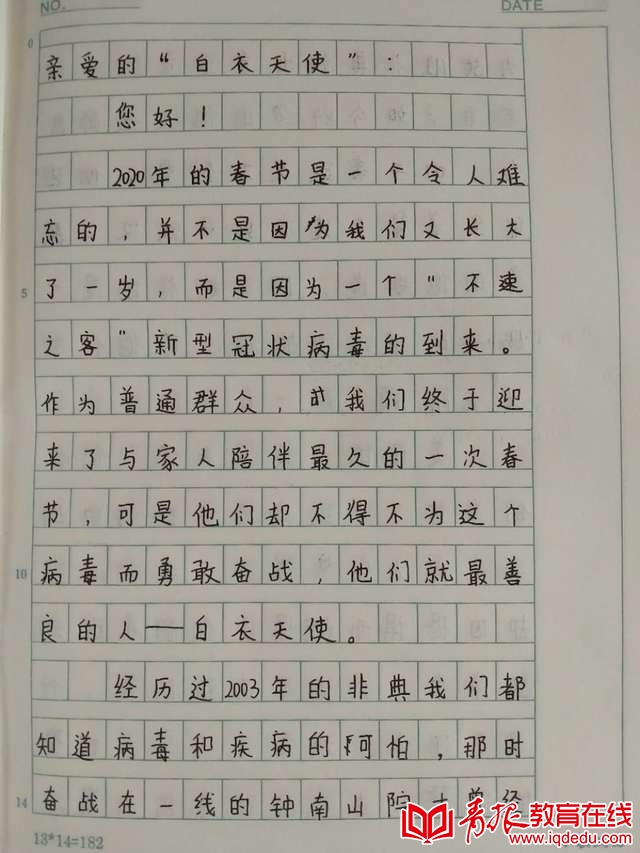 NO.
DATE
0
亲爱的“白衣天使”：
您好！
2020年的春节是一个令人难
忘的，并不是因为我们又长大
5
了一岁，而是因为一个"不速
之客"新型冠状病毒的到来。
作为普通群众，我们终于迎
来了与家人陪伴最久的一次春
节，可是他们却不得不为这个
10
病毒而勇敢奋战，他们就最善
良的人——白衣天使。
经历过2003年的非典我们都
知道病毒和疾病的可怕，那时
14
奋战在一线的钟南山院士曾经
13*14=182
青报教育在线
www.iqdedu.com